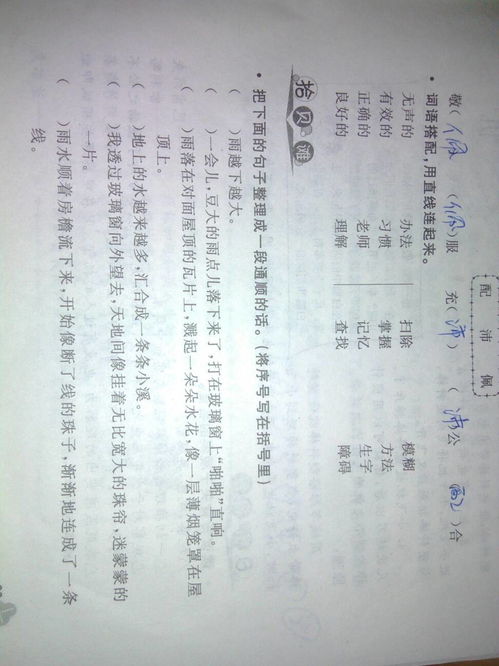 配 沛 佩
敬(佩) (佩)服 充(沛) (沛)公 (配)合
·词语搭配,用直线连起来。
无声的 办法 扫除 模糊
有效的 习惯 掌握 方法
正确的 老师 记忆 生字
良好的 理解 查找 障碍
拾贝滩
·把下面的句子整理成一段通顺的话。(将序号写在括号里)
( )雨越下越大。
( )一会儿,豆大的雨点儿落下来了,打在玻璃窗上“啪啪”直响。
( )雨落在对面屋顶的瓦片上,溅起一朵朵水花,像一层薄烟笼罩在屋
顶上。
( )地上的水越来越多,汇合成一条条小溪。
( )我透过玻璃窗向外望去,天地间像挂着无比宽大的珠帘,迷蒙蒙的
一片。
( )雨水顺着房檐流下来,开始像断了线的珠子,渐渐地连成了一条
线。